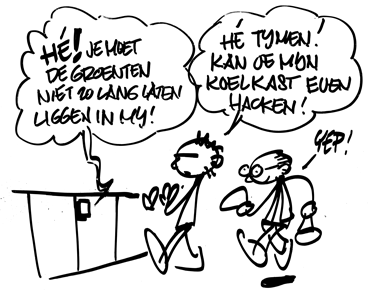 HÉ! JE MOET
DE GROENTEN
NIET ZO LANG LATEN
LIGGEN IN MY!
HÉ TYMEN!
KAN JE MIJN
KOELKAST EVEN
HACKEN!
YEP!